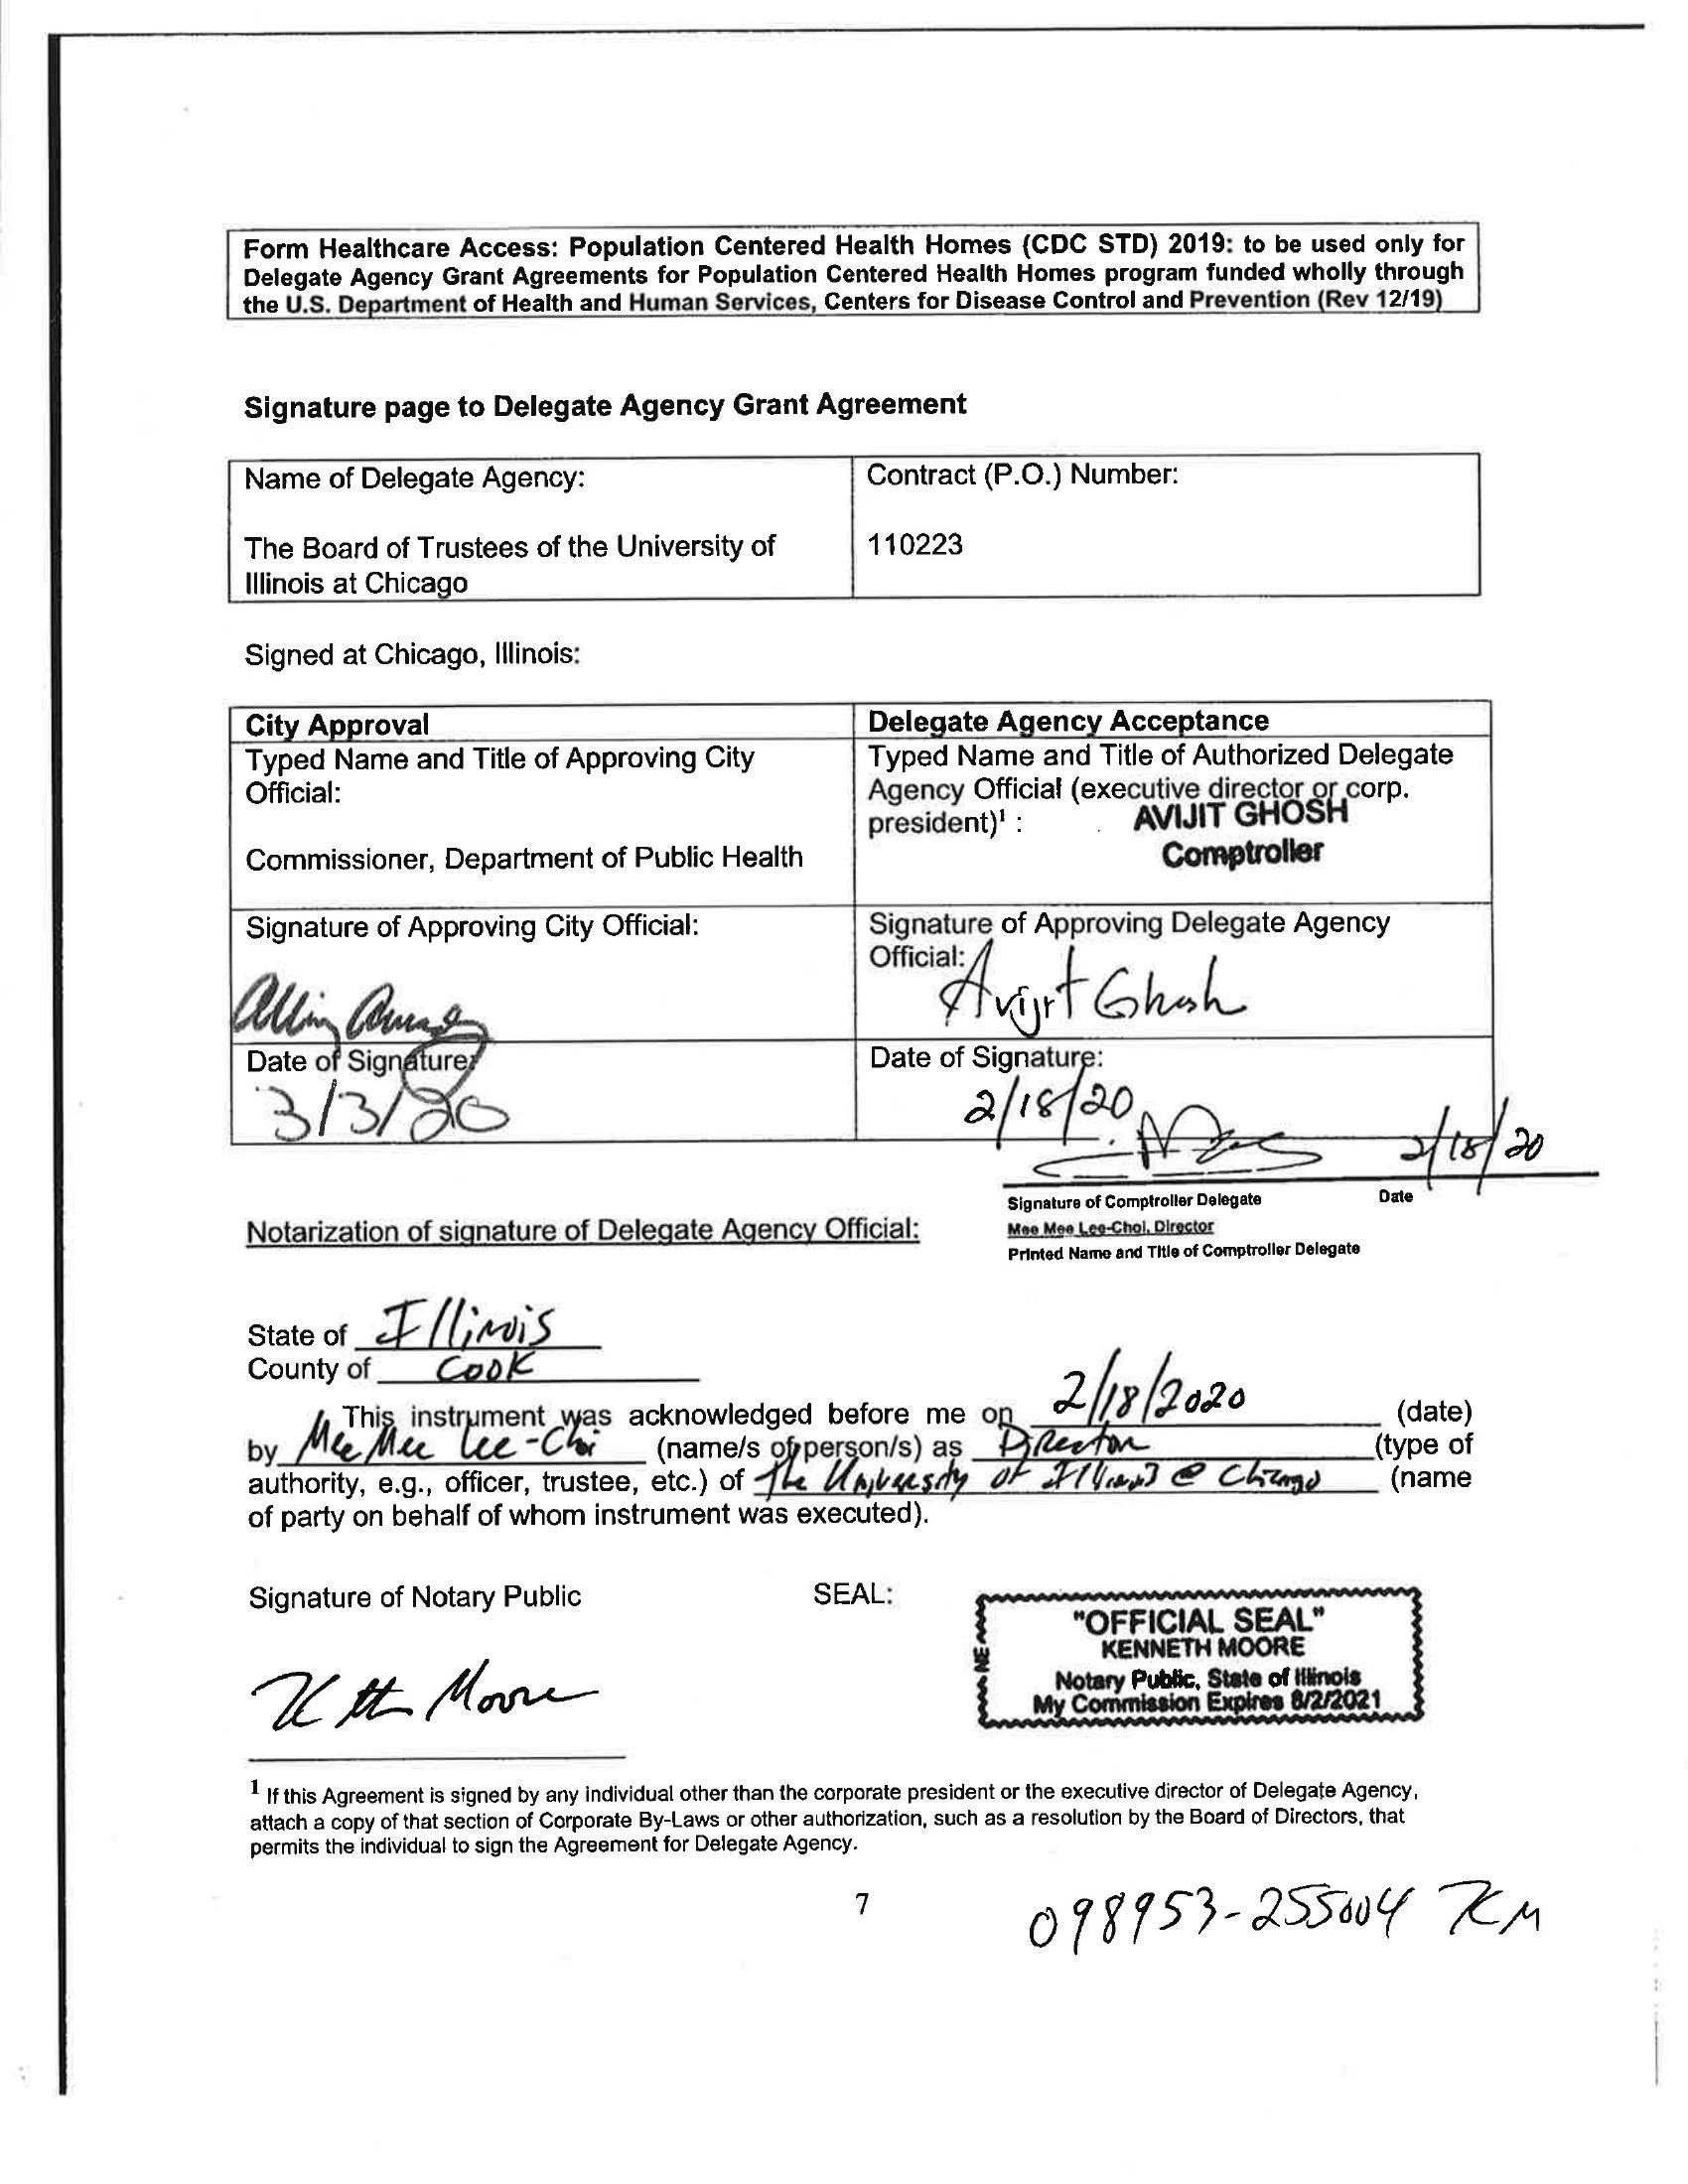 Form Healthcare Access: Population Centered Health Homes (CDC STD) 2019: to be used only for
Delegate Agency Grant Agreements for Population Centered Health Homes program funded wholly through
the U.S. Department of Health and Human Services, Centers for Disease Control and Prevention (Rev 12/19)
Signature page to Delegate Agency Grant Agreement
Name of Delegate Agency:
The Board of Trustees of the University of
Illinois at Chicago
Contract (P.O.) Number:
110223
Signed at Chicago, Illinois:
City Approval
Typed Name and Title of Approving City
Official:
Commissioner, Department of Public Health
Delegate Agency Acceptance
Typed Name and Title of Authorized Delegate
Agency Official (executive director or corp.
president)¹ :
AVIJIT GHOSH
Comptroller
Signature of Approving City Official:
Date of Signature:
3/3/20
Signature of Approving Delegate Agency
Official: Avijit Ghosh
Date of Signature:
2/18/20
2/18/20
Signature of Comptroller Delegate Date
Mee Mee Lee-Choi, Director
Printed Name and Title of Comptroller Delegate
Notarization of signature of Delegate Agency Official:
State of Illinois
County of Cook
This instrument was acknowledged before me on 2/18/2020 (date)
by Mee Mee Lee-Choi (name/s of person/s) as Director (type of
authority, e.g., officer, trustee, etc.) of The University of Illinois @ Chicago (name
of party on behalf of whom instrument was executed).
Signature of Notary Public
SEAL:
"OFFICIAL SEAL"
KENNETH MOORE
Notary Public, State of Illinois
My Commission Expires 8/2/2021
Moore
1 If this Agreement is signed by any individual other than the corporate president or the executive director of Delegate Agency,
attach a copy of that section of Corporate By-Laws or other authorization, such as a resolution by the Board of Directors, that
permits the individual to sign the Agreement for Delegate Agency.
7
098953-255004 KM